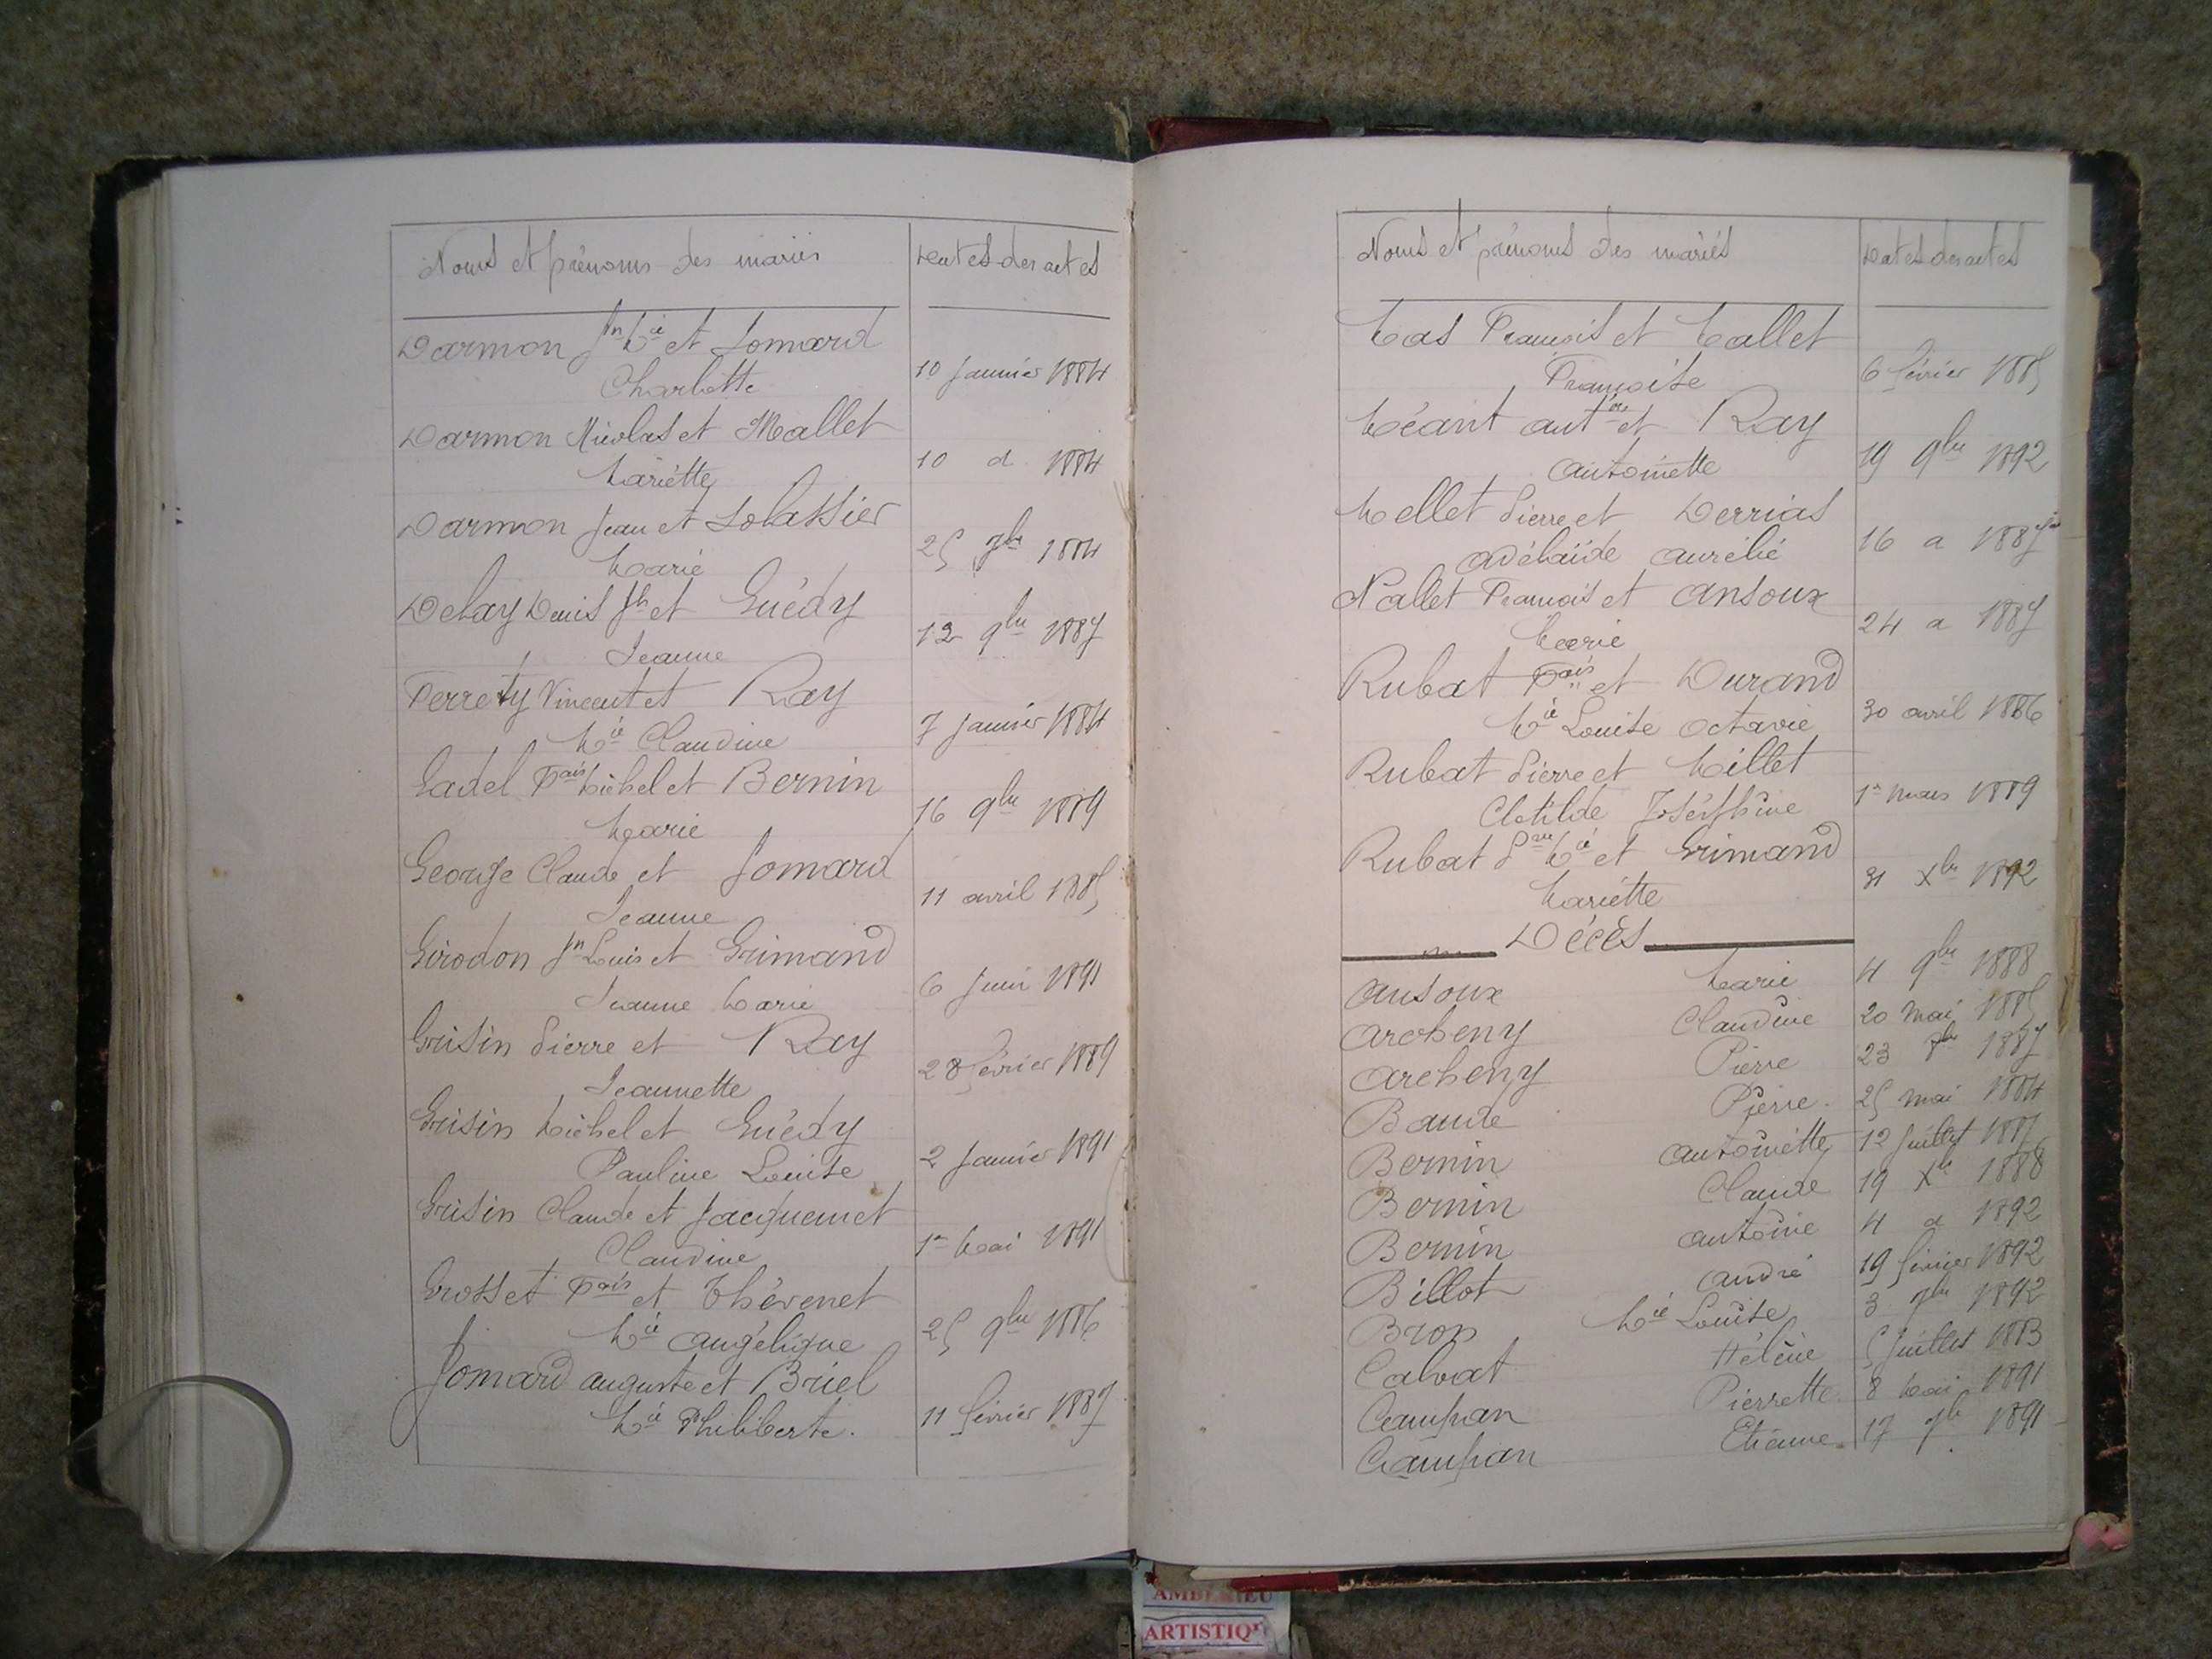 Noms et prénoms des mariés
Dates des actes
Darmon Jn Mie et Jomard
Charlotte
10 Janvier 1884
Darmon Nicolas et Mallet
Mariette
10 d 1884
Darmon Jean et Solassier
Marie
25 7bre 1884
Delay Denis Jh et Guédy
Jeanne
12 9bre 1887
Ferrety Vincent et Ray
Mie Claudine
7 Janvier 1884
Gadel Fçais Michel et Bernin
Marie
16 9bre 1889
George Claude et Jomard
Jeanne
11 avril 1885
Girodon Jn Louis et Grimand
Jeanne Marie
6 Juin 1891
Grisin Pierre et Ray
Jeannette
28 février 1889
Grisin Michel et Guédy
Pauline Louise
2 Janvier 1891
Grisin Claude et Jacquemet
Claudine
1er Mai 1891
Grosset Fçais et Thévenet
Mie Angélique
25 9bre 1886
Jomard Auguste et Briel
Mie Philiberte.
11 février 1887
Noms et prénoms des mariés
Dates des actes
Mas François et Mallet
Françoise
6 février 1885
Méant et Ray
Antoinette
19 9bre 1892
Mellet Pierre et Derrias
Adélaïde Aurélie
16 d 1887
Nallet François et Ansoux
Marie
24 d 1887
Rubat Fçais et Durand
Mie Louise Octavie
30 avril 1886
Rubat Pierre et Millet
Clotilde Joséphine
1er Mars 1889
Rubat Mie et Grimand
Mariette
31 Xbre 1892
Décès
Ansoux Marie 4 9bre 1888
Archeny Claudine 20 Mai 1885
Archeny Pierre 23 1887
Baude Pierre. 25 mai 1884
Bernin Antoinette 12 Juillet 1887
Bernin Claude 19 Xbre 1888
Bernin Antoine 4 d 1892
Billot André 19 février 1892
Bron Mie Louise 3 7bre 1892
Calvat Hélène 5 Juillet 1883
Campan Pierrette 8 Mai 1891
Campan Etienne 17 7bre 1891
ARTISTIQ